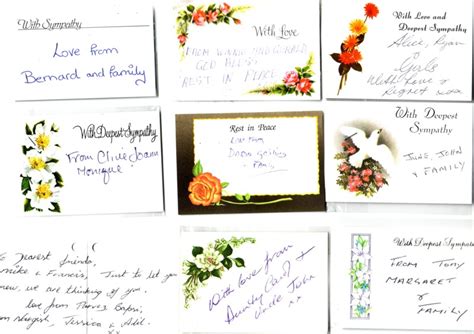 With Sympathy
Love from
Bernard and family
With Love
FROM WINNIE AND GERALD
GOD BLESS
REST IN PEACE
With Love and
Deepest Sympathy
Alice, Ryan
&
Girls
With Love &
Regret xxx
With Deepest Sympathy
From Clive Joann
Monique
Rest in Peace
Love from
Family
With Deepest
Sympathy
JUNE, JOHN
& FAMILY
To Dearest friends,
& Francis, Just to let you
know, we are thinking of you.
love from
Jessica & Adil.
With love from
Auntie Carol &
Uncle John
xx
With Deepest Sympathy
FROM TONY
MARGARET
& FAMILY